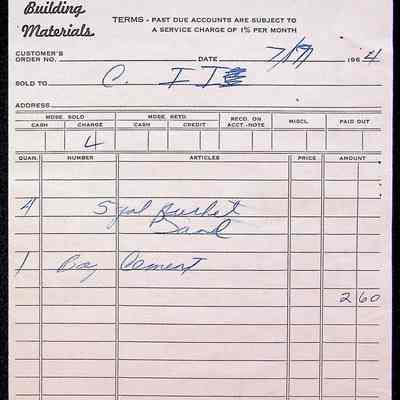 Building
Materials
TERMS - PAST DUE ACCOUNTS ARE SUBJECT TO
A SERVICE CHARGE OF 1% PER MONTH
CUSTOMER'S
ORDER NO. DATE 7/17 1964
SOLD TO C. I I
ADDRESS
MDSE. SOLD MDSE. RETD. REC'D. ON MISCL. PAID OUT
CASH CHARGE CASH CREDIT ACCT.-NOTE
4
QUAN. NUMBER ARTICLES PRICE AMOUNT
4 5 gal Bucket
Sand
1 Bag Cement
2 60